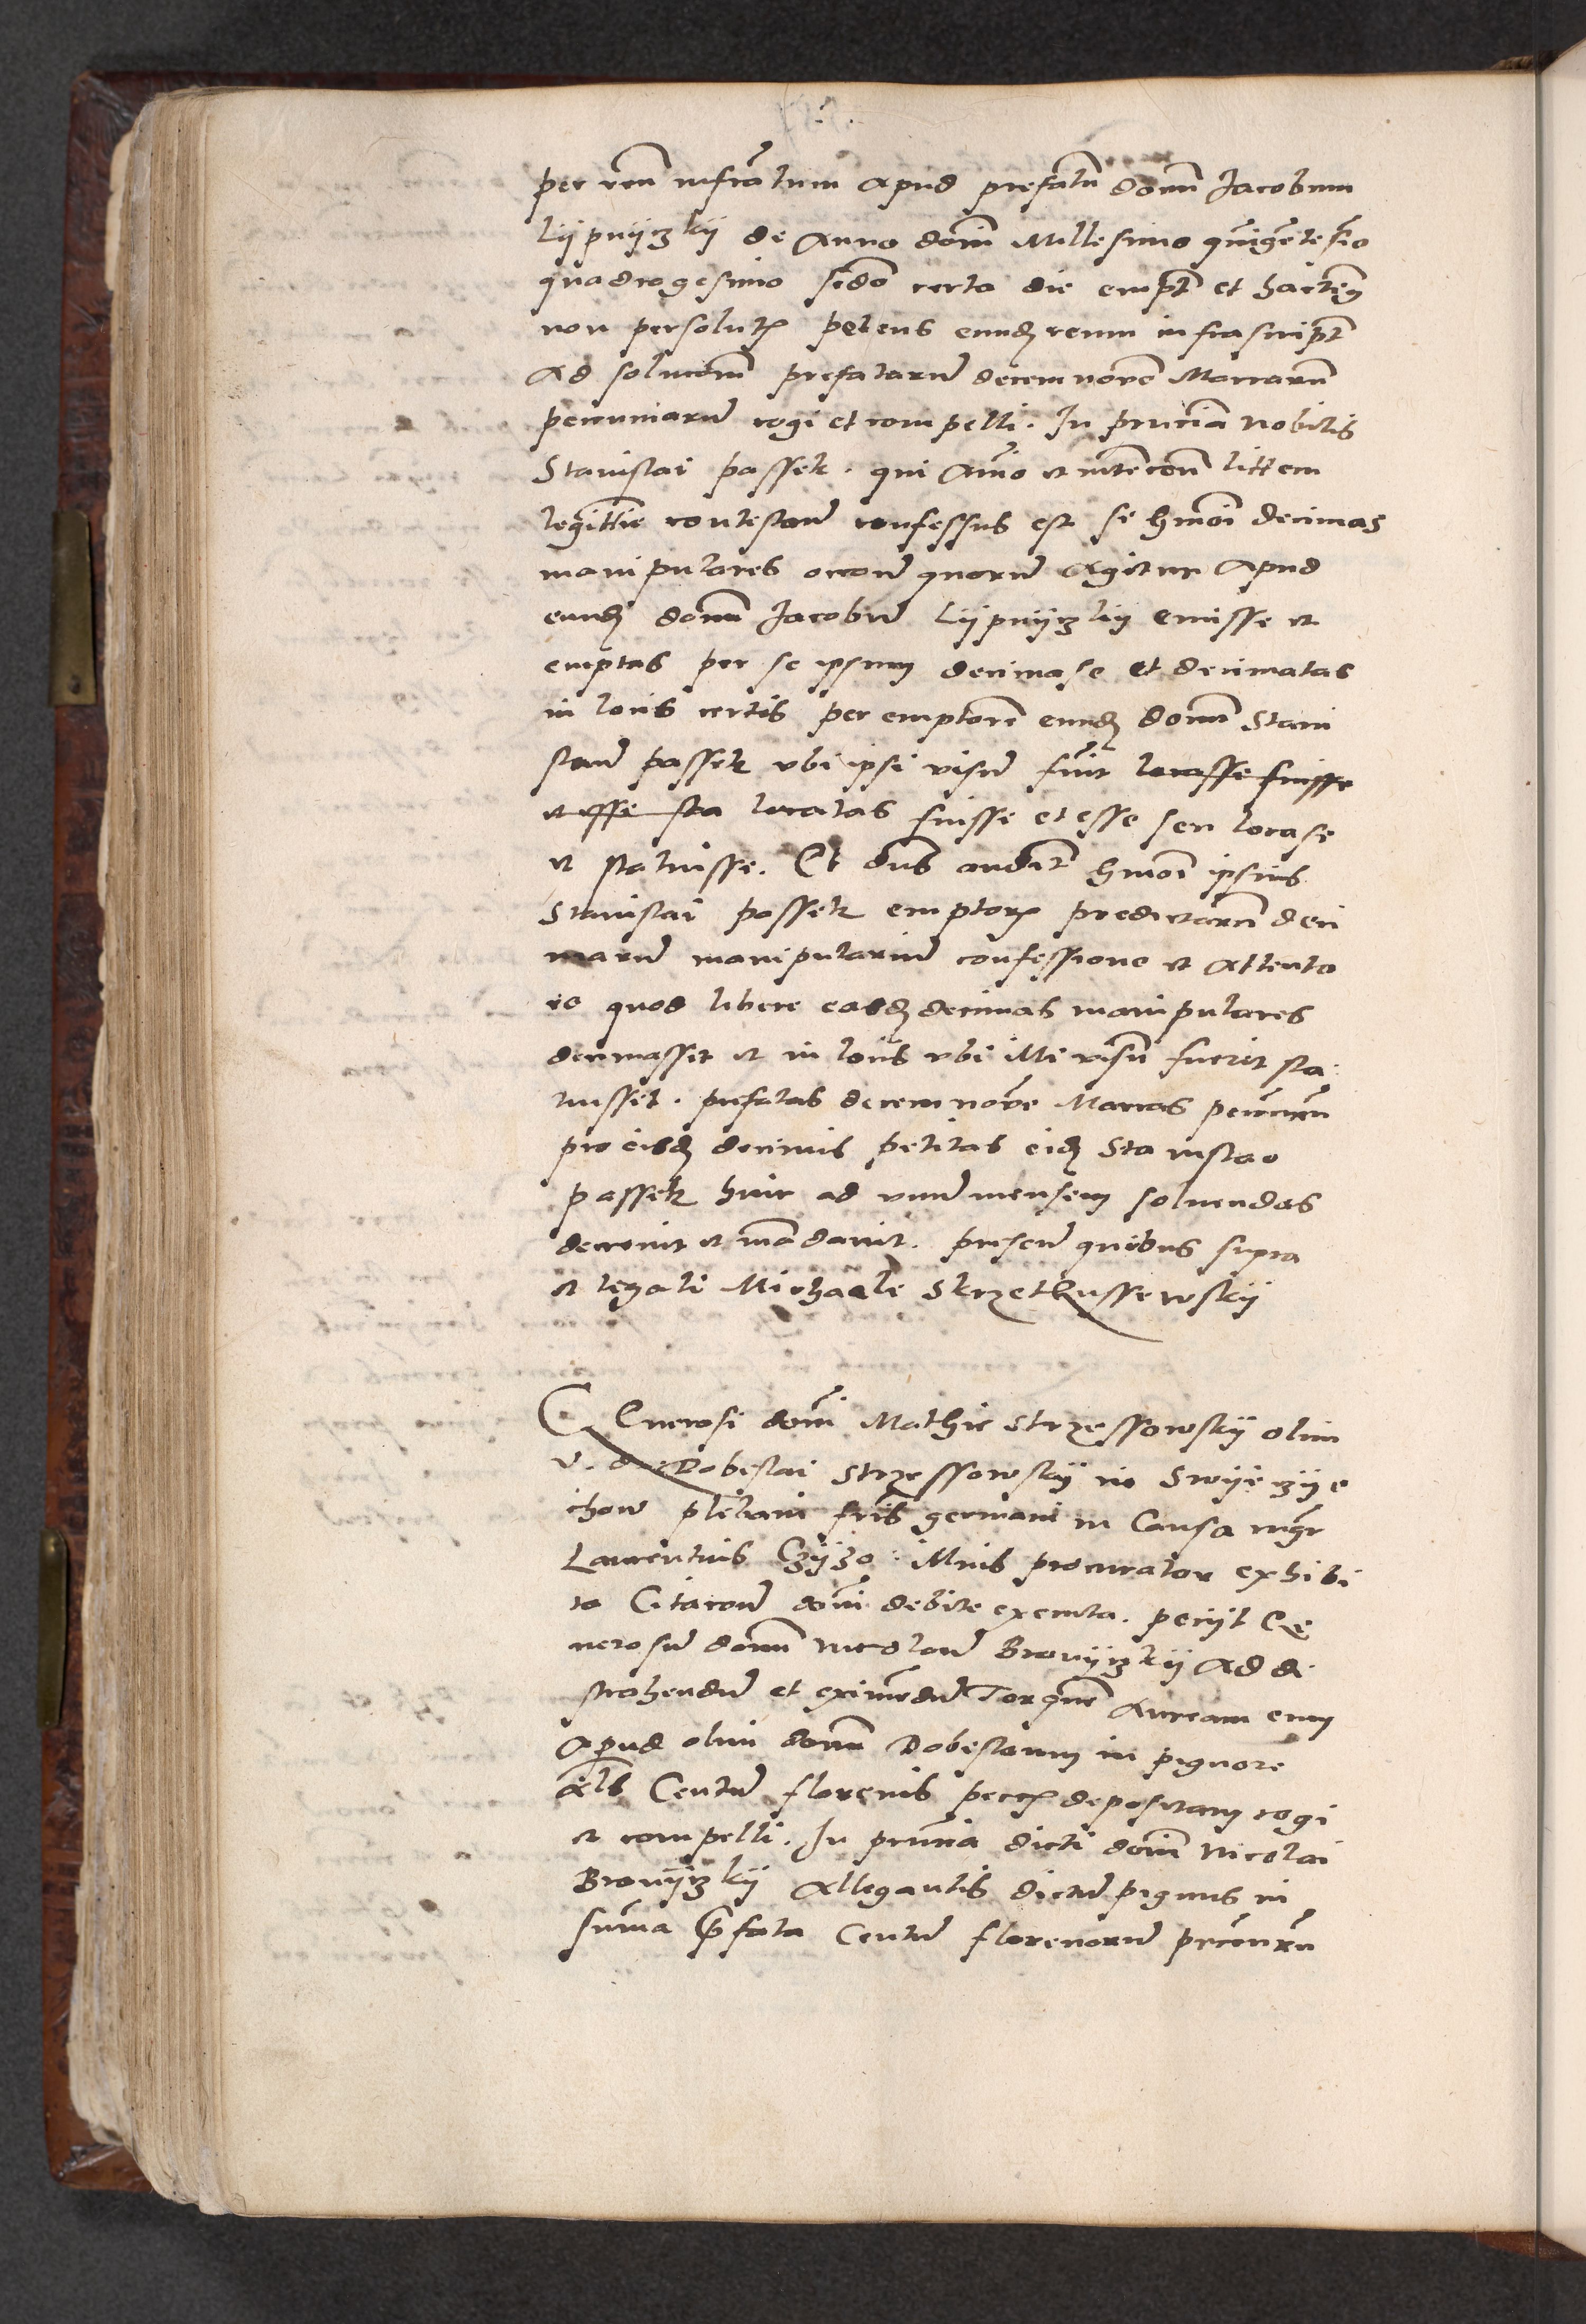 per reu͞ infra͞tum apud prefatu͞ dom͞ Jacobum
Lypnyczky de Anno dom͞ Millesimo quĩgẽtesĩo
quadragesimo sẽdo certo die empt͞ et hacten9
non persolut͞ petens eund͞ reum infrascript͞
Ad soluco͞m prefataru͞ decem novẽ Marcaru͞
pecuniaru͞ cogi et compelli. In pn͞cia Nobilis
Stanislai passek. qui Anio͞ et intenco͞e littem
legittiẽ contestan͞ confessus est se hm͞oi decimas
manipulares occo͞ne quaru͞ agitur Apud
eund͞ dom͞ Jacobu͞ Lypnyczky emisse et
emptas per se ipsum decimasse et decimatas
in locis certis per emptorẽ eund͞ dom͞ Stani
slau͞ passek ubi ipsi visu͞ fuit locasse fuisse
et esse sta locatas fuisse et esse seu locasse
et statuisse. Et dn͞s audit͞ hm͞oi ipsius
Stanislai passek emptor͞ predictaru͞ deci
maru͞ manipulariu͞ confessione et attento
eo quod libere easd͞ decimas manipulares
decimasset et in locis ubi illi visu͞ fuerit sta
tuisset. prefatas decem novẽ Marcas pecun͞
pro eisd͞ decimis petitas eid͞ Stanislao
passek hinc ad unu͞ mensem solvendas
decrevit et mãdavit. presen͞ quibus supra
et legali Michaele Skrzetkussewsky

Generosi dom͞ Mathie Strzessowsky olim
v. d. Dobeslai Strzessowsky in Swyeczye
chow plebani fr͞is germani in Causa mg͞r
Laurentius Czyzo illius procurator exhibi
ta Citaco͞ne dom͞ debite executa. petiit Ge
nerosu͞ dom͞ Nicolau͞ Bronyczky Ad di
strahendu͞ et eximẽdu͞ Torquẽ Auream eum
Apud olim dom͞ Dobeslaum in pignore
al͞s Centu͞ florenis pecc͞ depositam cogi
et compelli. In pn͞cia dicti dom͞ Nicolai
Bronyczky Allegantis dictu͞ pignus in
sum͞a p͞fata Centu͞ florenoru͞ pecun͞